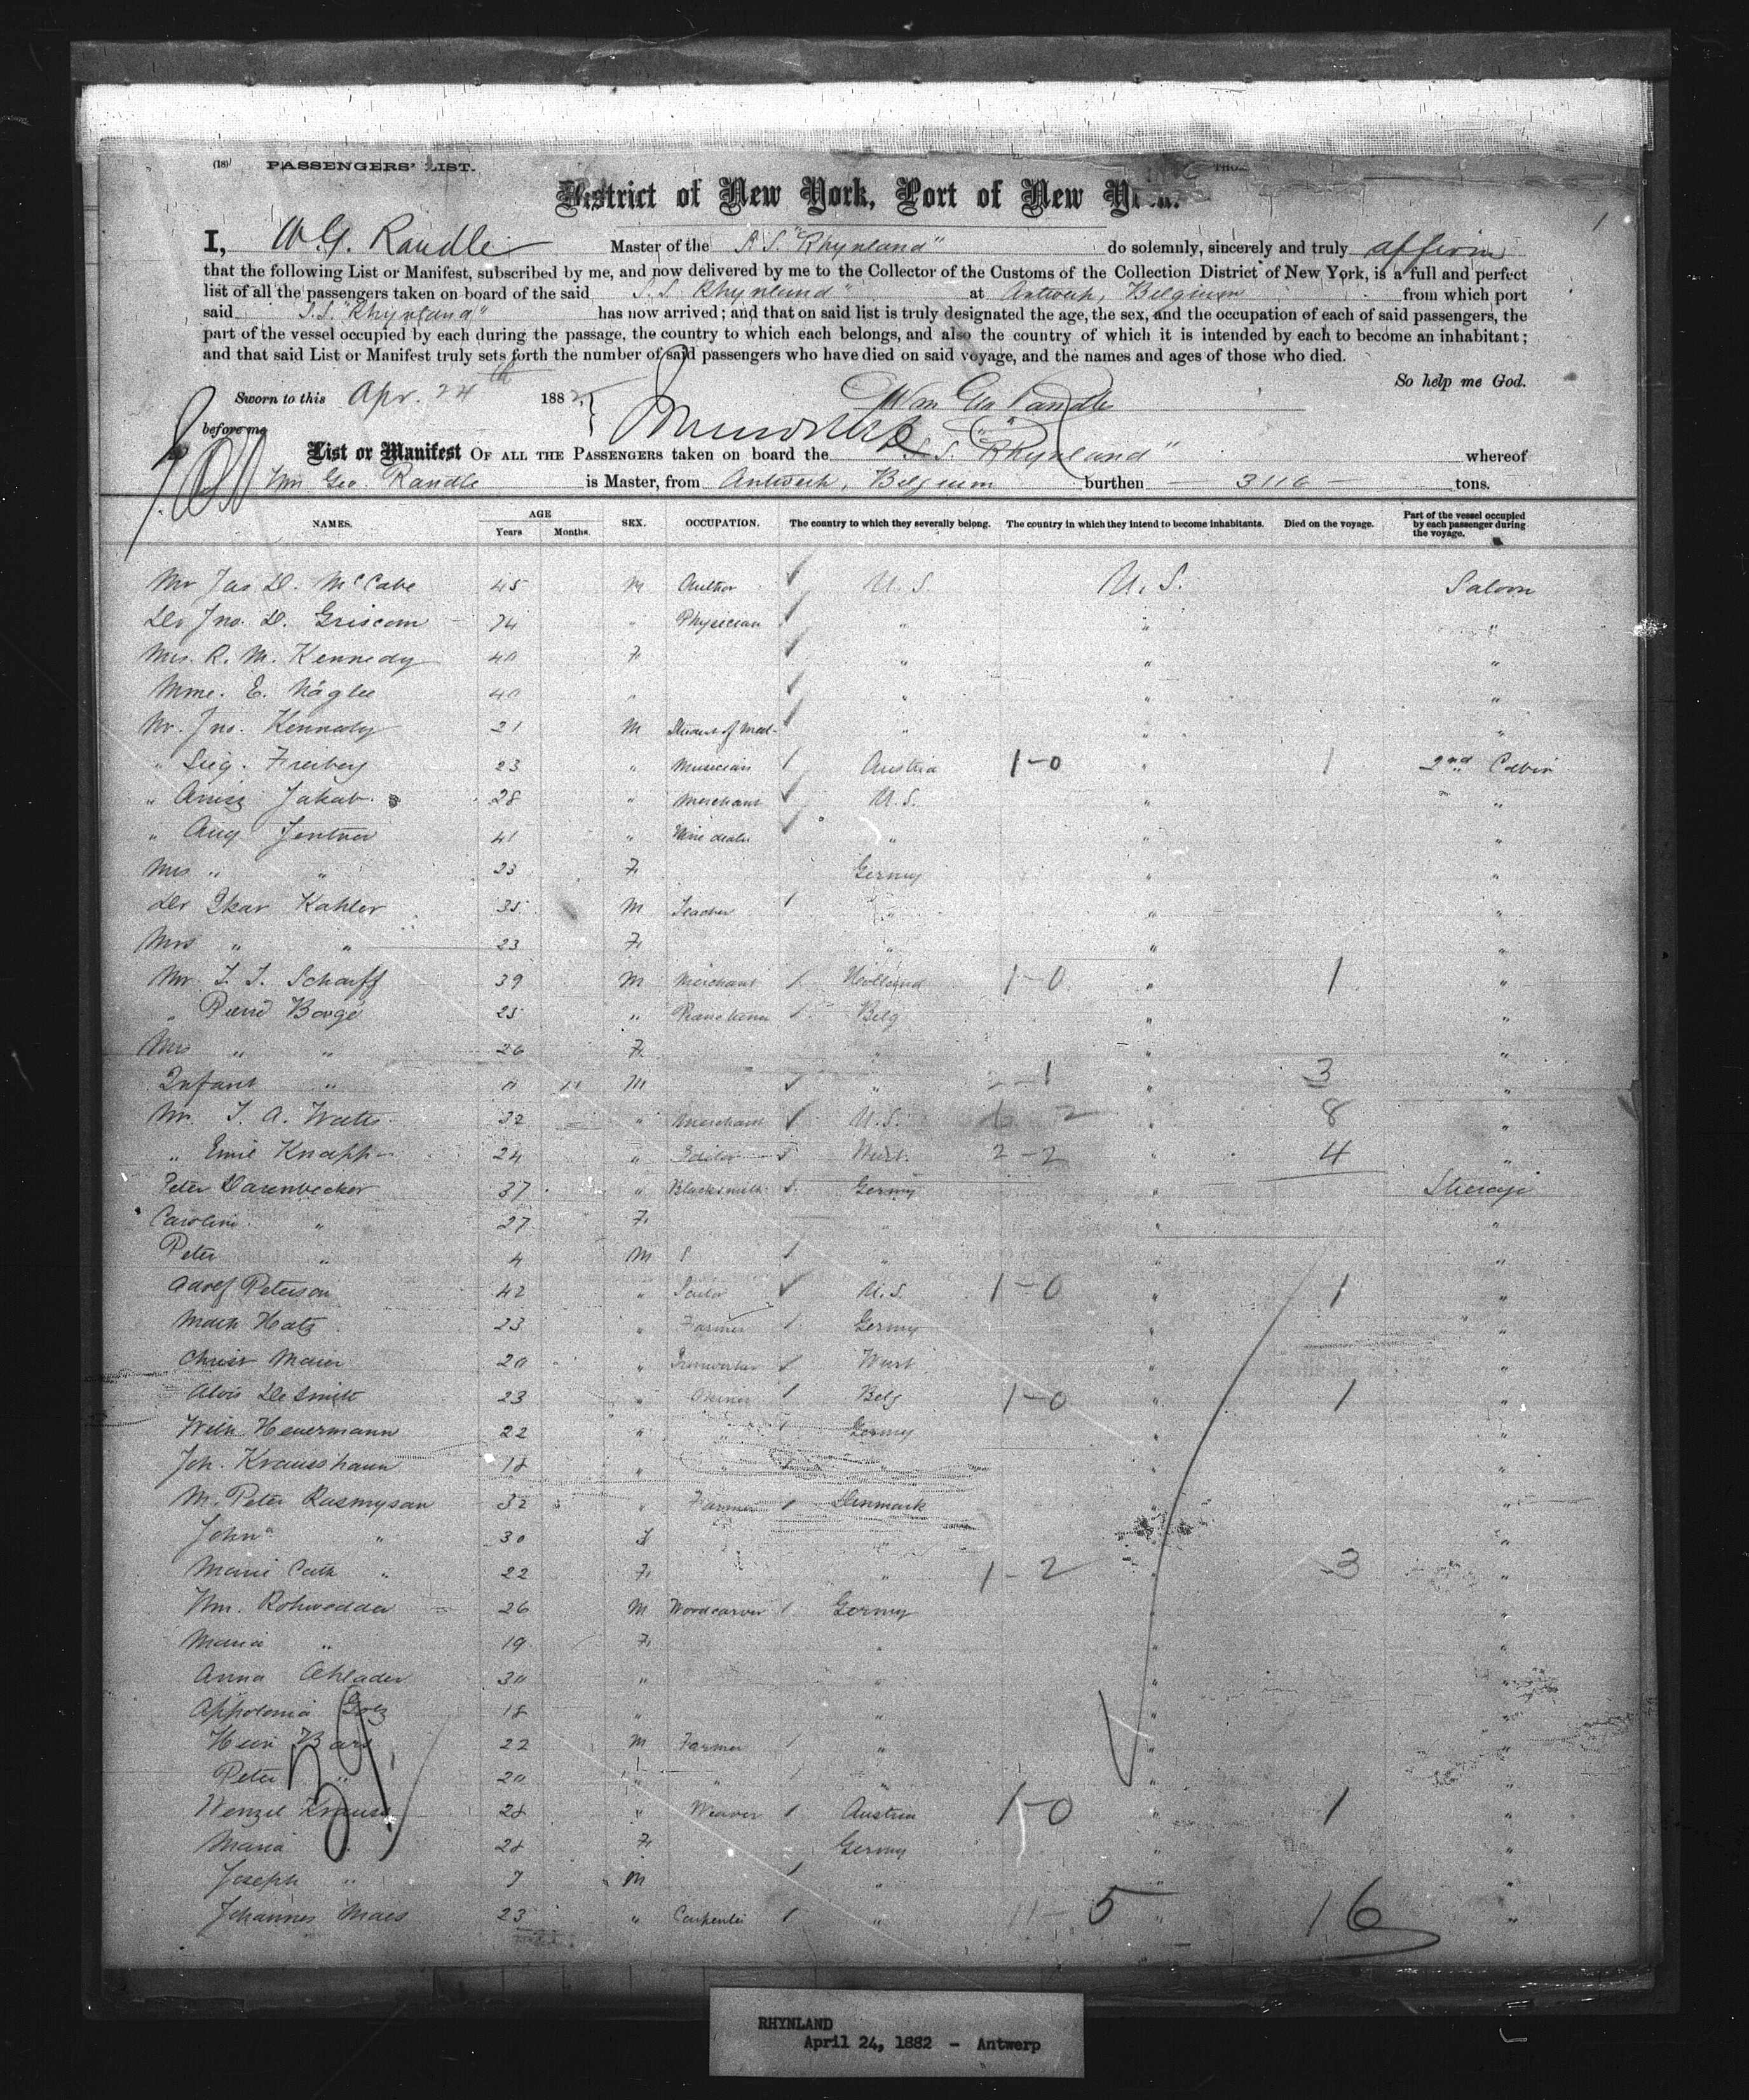 (18) PASSENGERS' LIST.
District of New York, Port of New
I, W. G. Randle Master of the S.S. "Rhynland" do solemnly, sincerely and truly affirm
that the following List or Manifest, subscribed by me, and now delivered by me to the Collector of the Customs of the Collection District of New York, is a full and perfect
list of all the passengers taken on board of the said S.S. Rhynland" at Antwerp, Belgium from which port
said S.S. "Rhynland" has now arrived; and that on said list is truly designated the age, the sex, and the occupation of each of said passengers, the
part of the vessel occupied by each during the passage, the country to which each belongs, and also the country of which it is intended by each to become an inhabitant;
and that said List or Manifest truly sets forth the number of said passengers who have died on said voyage, and the names and ages of those who died.
So help me God.
Sworn to this Apr. 24th 1882, Wm Geo Randle
before me
List or Manifest OF ALL THE PASSENGERS taken on board the S.S. "Rhynland" whereof
Wm Geo. Randle is Master, from Antwerp, Belgium burthen 3116 tons.
NAMES. AGE Years Months. SEX. OCCUPATION. The country to which they severally belong. The country in which they intend to become inhabitants. Died on the voyage. Part of the vessel occupied by each passenger during the voyage.
Mr Jas D. McCabe 45 M Author U.S. U.S. Saloon
Dr Jno. D. Griscom 74 " Physician " " "
Mrs. R. M. Kennedy 40 F " " "
Mme. E. Naglee 40 " " " "
Mr. Jno. Kennedy 21 M Student of Med. " " "
" Sieg. Freiberg 23 " Musician Austria 1-0 " 1 2nd Cabin
" Jakab 28 " Merchant U.S. " "
" Aug Jentner 41 " Wine dealer " " "
Mrs " " 23 F Germy " "
Dr Oskar Kahler 35 M Teacher " " "
Mrs " " 23 F " " "
Mr. Scharff 39 M Merchant Holland 1-0 " 1 "
" 25 " Belg " "
Mrs " " 26 F " " "
Infant " 11 M " 1 " 3 "
Mr. J. A. Watts 32 " Merchant U.S. " 8 "
" Emil Knapp 24 " Editor Wurt. 2-2 " 4 "
Peter Darenbecker 37 " Blacksmith Germy " Steerage
Caroline " 27 F " " "
Peter " 4 M " " "
Adolf Peterson 42 " U.S. 1-0 " 1 "
Math Hatz 23 " Farmer Germy " "
Christ Maier 20 " Ironworker Wurt " "
Alois DeSmith 23 " Miner Belg 1-0 " 1 "
Wilh Heuermann 22 " " Germy " "
Joh. Krausshaun 18 " " " " "
M. Peter Rasmysan 32 " Farmer Denmark " "
John " 30 " " "
Marie Cath " 22 F " 1-2 " 3 "
Wm. Rohwedder 26 M Woodcarver Germy " "
Maria " 19 F " " "
Anna Ahlader 30 " " " "
Appolonia Golz 18 " " " "
Hein Bars 22 M Farmer " " "
Peter " 20 " " " " "
Wenzel Krauss 28 " Weaver Austria 1-0 " 1 "
Maria " 28 F Germy " "
Joseph " 7 M " " "
Johannes Maes 23 " Carpenter " 11-5 " 16 "
RHYNLAND
April 24, 1882 - Antwerp